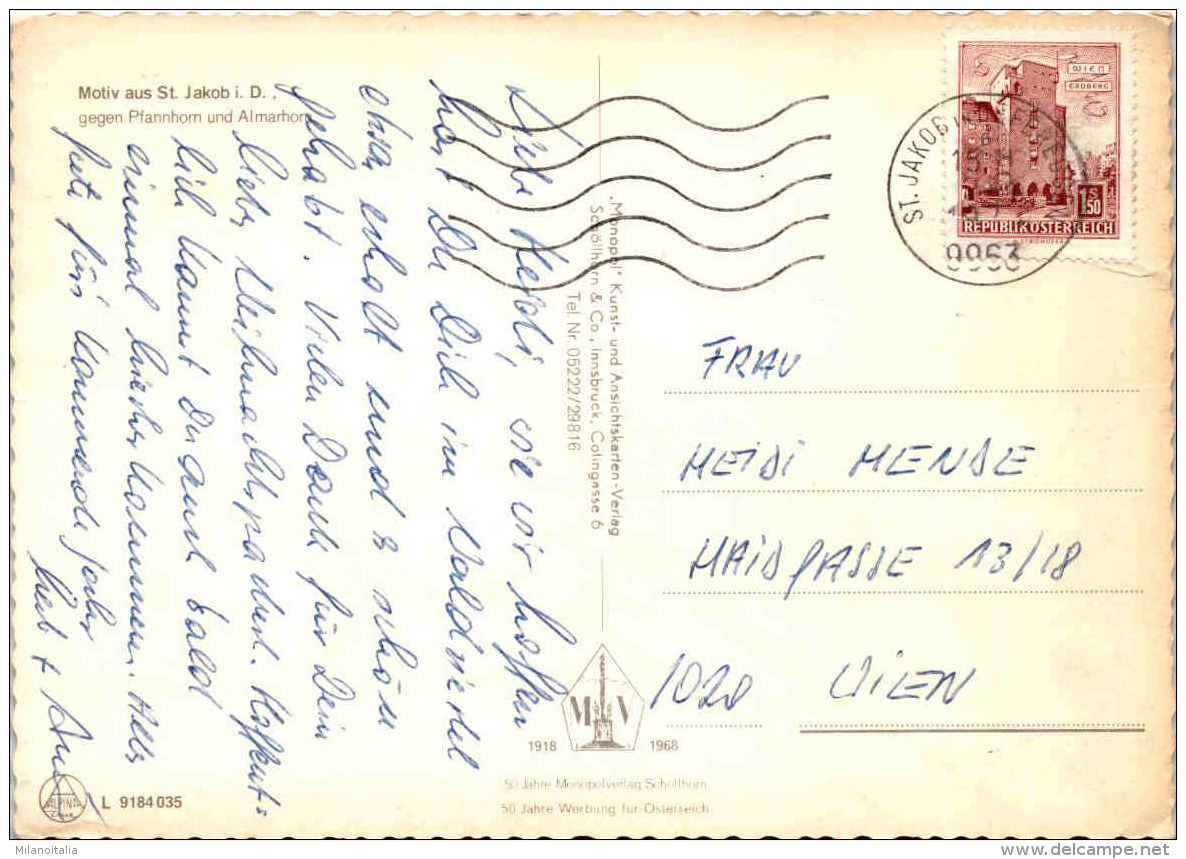 Motiv aus St. Jakob i. D.,
gegen Pfannhorn und Almarhorn
Liebe Heidi, wie wir hoffen
hast Du Dich im Waldviertel
etwas erholt und es schön
gehabt. Vielen Dank für Dein
liebes Weihnachtspackerl. Hoffentl.
kannst Du auch bald
einmal hierher kommen. Alles
Gute fürs kommende Jahr
"Monopol" Kunst- und Ansichtskarten-Verlag
Schöllhorn & Co., Innsbruck, Colingasse 6
Tel. Nr. 05222/29816
WIEN
ERDBERG
S
1.50
REPUBLIK ÖSTERREICH
ST. JAKOB
9963
FRAU
HEIDI MENSE
HAIDGASSE 13/18
1020 WIEN
M V
1918 1968
50 Jahre Monopolverlag Schöllhorn
50 Jahre Werbung für Österreich
ALPINA
L 9184035
Milanoitalia
delcampe.net